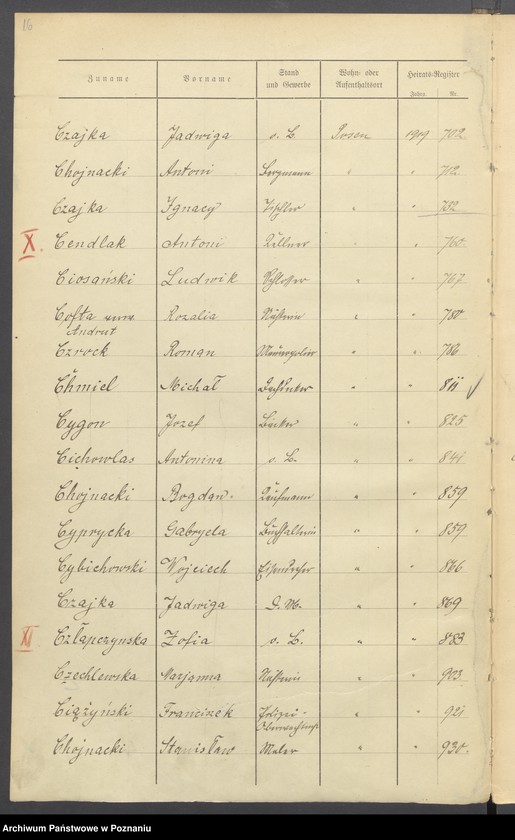 16
Zuname Vorname Stand und Gewerbe Wohn- oder Aufenthaltsort Heirats-Register Jahrg. Nr.
Czajka Jadwiga o. B. Posen 1919 702
Chojnacki Antoni Bergmann " " 712
Czajka Ignacy Tischler " " 732
X. Cendlak Antoni Kellner " " 760
Ciosański Ludwik Schlosser " " 767
Cofta verw. Rozalia Näherin " " 780
Andrut
Czrock Roman " " 786
Chmiel Michał Dachdecker " " 811
Cygon Jozef Bäcker " " 825
Cichowlas Antonina o. B. " " 841
Chojnacki Bogdan Kaufmann " " 859
Cyprycka Gabryela Buchhalterin " " 859
Cybichowski Wojciech Eisendreher " " 866
Czajka Jadwiga D. M. " " 869
XI Człapczynska Zofia o. B. " " 883
Czechlewska Marjanna Näherin " " 903
Ciążyński Franciszek Polizei- " " 921
Oberwachtmstr
Chojnacki Stanisław Maler " " 930
Archiwum Państwowe w Poznaniu